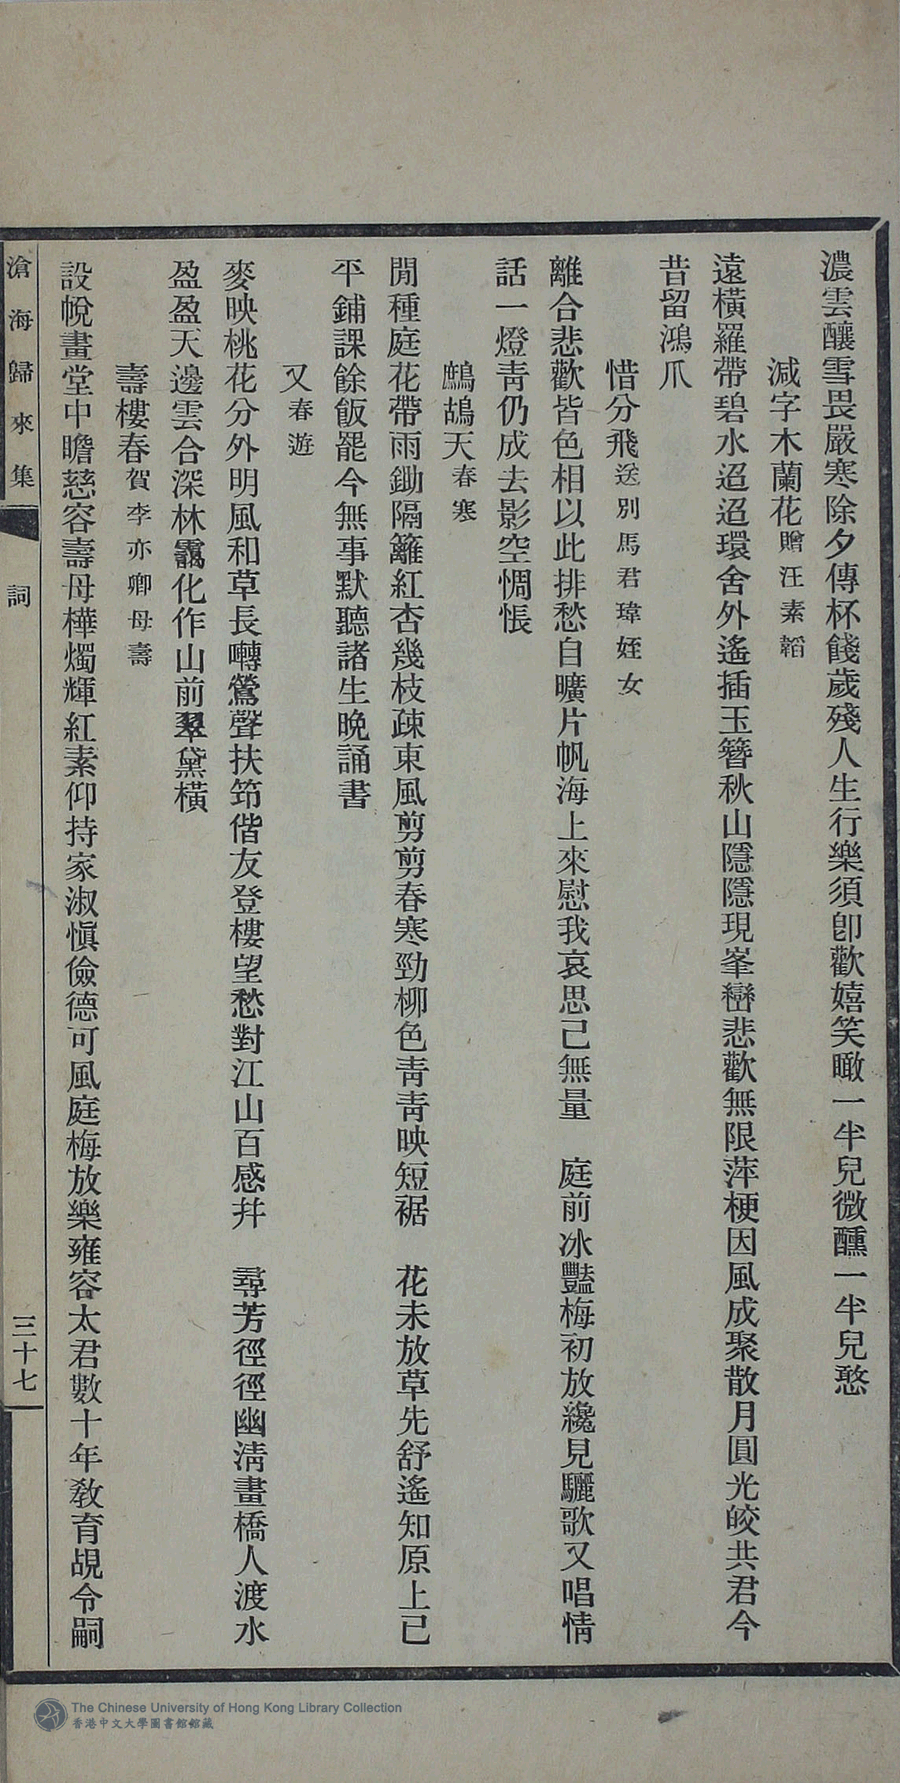 濃雲釀雪畏嚴寒除夕傳杯餞歲殘人生行樂須卽歡嬉笑瞰一半兒微醺一半兒憨
減字木蘭花贈汪素韜
遠橫羅帶碧水迢迢環舍外遙插玉簪秋山隱隱現峯巒悲歡無限萍梗因風成聚散月圓光皎共君今
昔留鴻爪
惜分飛送別馬君瑋姪女
離合悲歡皆色相以此排愁自曠片帆海上來慰我哀思己無量　庭前冰豔梅初放纔見驪歌又唱情
話一燈靑仍成去影空惆悵
鷓鴣天春寒
閒種庭花帶雨鋤隔籬紅杏幾枝疎東風剪剪春寒勁柳色靑靑映短裾　花未放草先舒遙知原上已
平鋪課餘飯罷今無事默聽諸生晚誦書
又春遊
麥映桃花分外明風和草長囀鶯聲扶筇偕友登樓望愁對江山百感幷　尋芳徑徑幽淸畫橋人渡水
盈盈天邊雲合深林靄化作山前翠黛橫
壽樓春賀李亦卿母壽
設帨畫堂中瞻慈容壽母樺燭輝紅素仰持家淑愼儉德可風庭梅放樂雍容太君數十年敎育覘令嗣
滄海歸來集
詞
三十七
The Chinese University of Hong Kong Library Collection
香港中文大學圖書館館藏